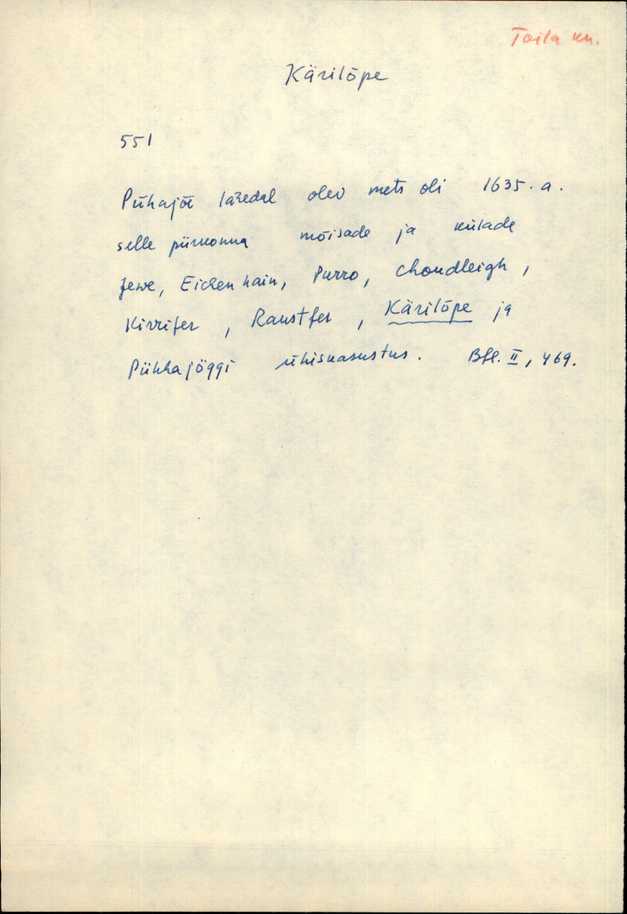 Toila kn.
Kärilõpe
551
Pühajõe läredal olev mets oli 1635. a.
selle piirkonna mõisade ja külade
Jewe, Eichenhain, Purro, Choudleigh,
Kirrifer, Raustfer, Kärilõpe ja
Pühhajöggi ühiskasustus. Bfl. II, 469.